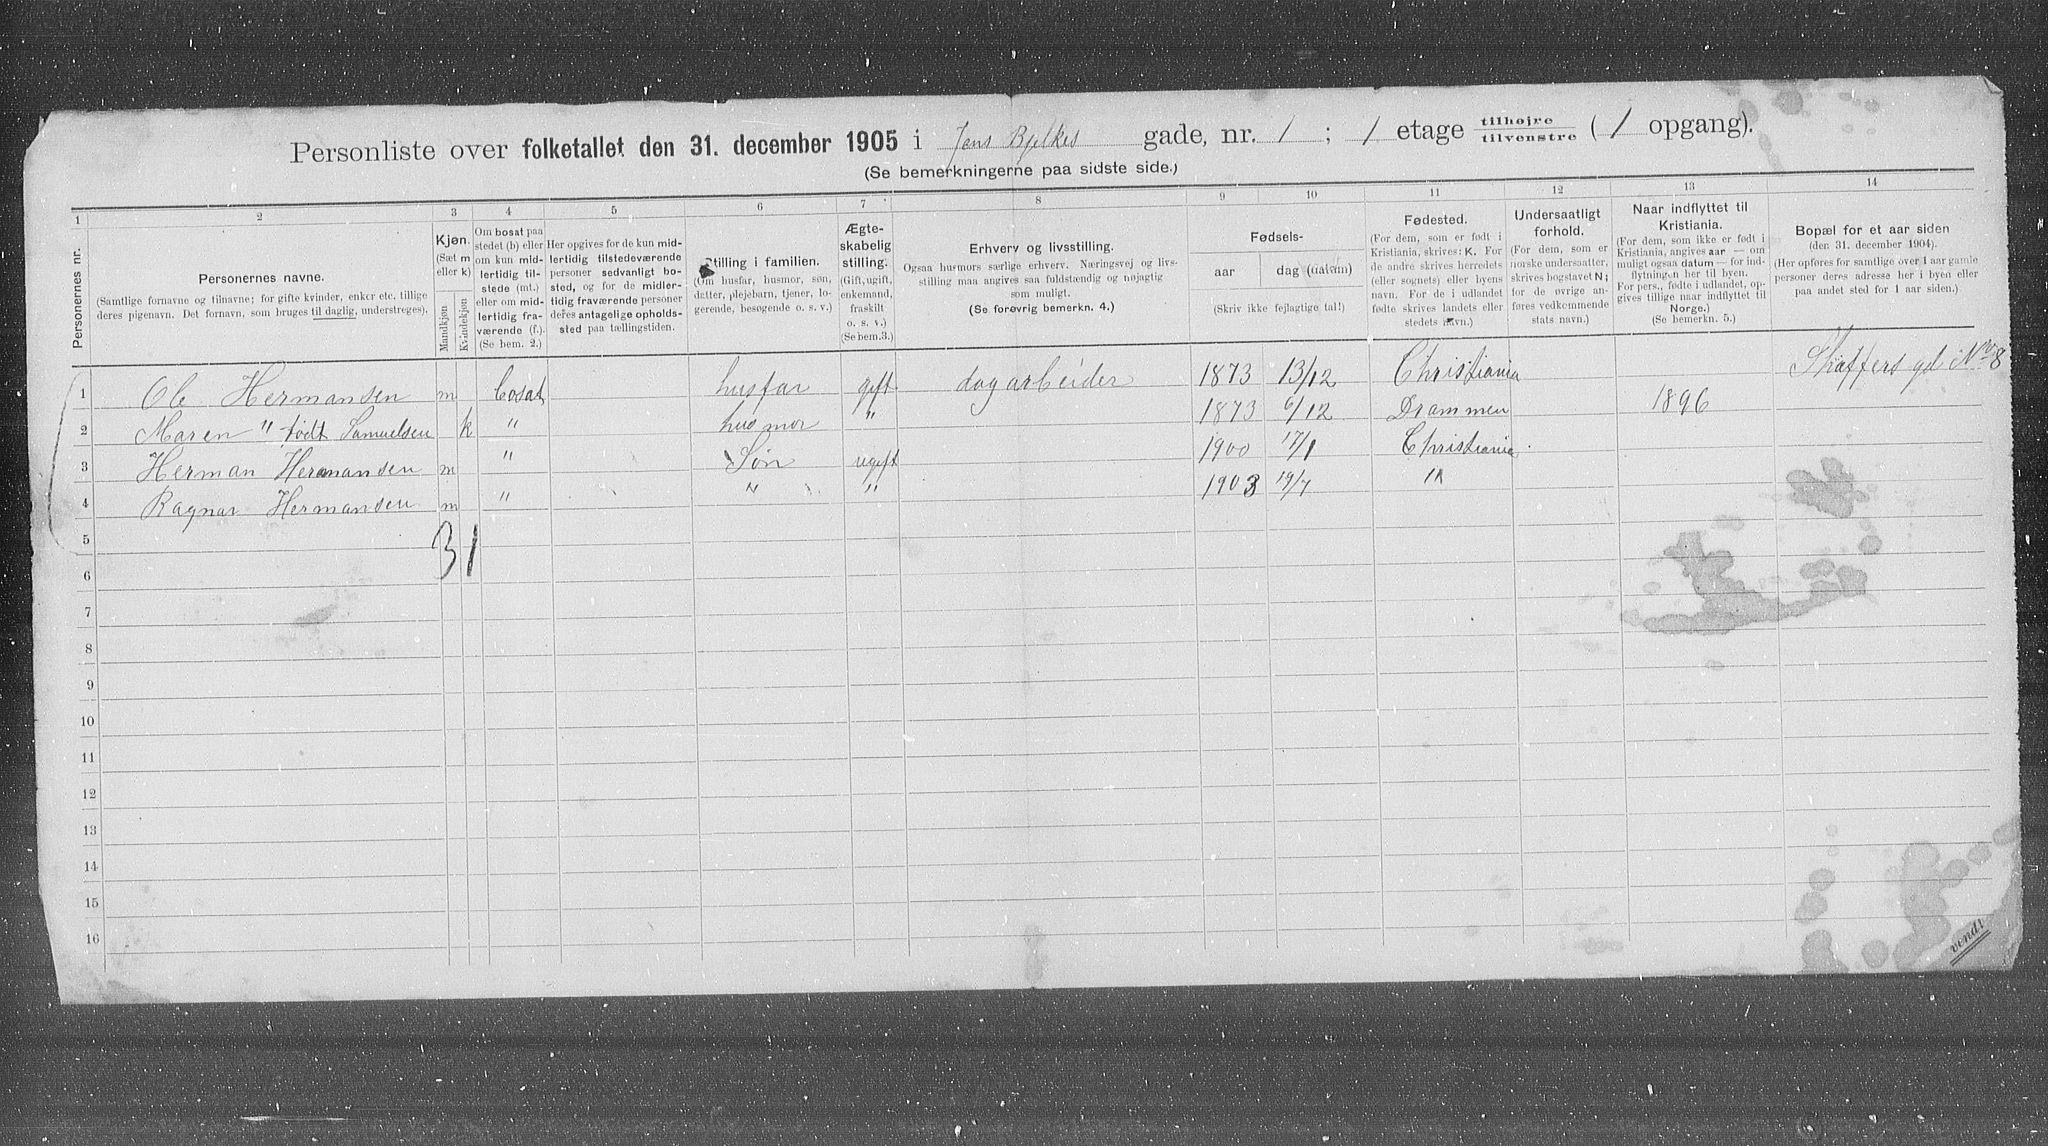 Personliste over folketallet den 31. december 1905 i Jens Bjelkes gade, nr. 1 ; 1 etage tilhøjre / tilvenstre ( 1 opgang).
(Se bemerkningerne paa sidste side.)
1 2 3 4 5 6 7 8 9 10 11 12 13 14
Personernes nr.
Personernes navne.
(Samtlige fornavne og tilnavne; for gifte kvinder, enker etc. tillige
deres pigenavn. Det fornavn, som bruges til daglig, understreges).
Kjøn.
(Sæt m
eller k)
Mandkjøn
Kvindekjøn
Om bosat paa
stedet (b) eller
om kun mid-
lertidig til-
stede (mt.)
eller om mid-
lertidig fra-
værende (f.).
(Se bem. 2.)
Her opgives for de kun mid-
lertidig tilstedeværende
personer sedvanligt bo-
sted, og for de midler-
tidig fraværende personer
deres antagelige opholds-
sted paa tællingstiden.
Stilling i familien.
(Om husfar, husmor, søn,
datter, plejebarn, tjener, lo-
gerende, besøgende o. s. v.)
Ægte-
skabelig
stilling.
(Gift, ugift,
enkemand,
fraskilt
o. s. v.)
(Se bem.3.)
Erhverv og livsstilling.
Ogsaa husmors særlige erhverv. Næringsvej og livs-
stilling maa angives saa fuldstændig og nøjagtig
som muligt.
(Se forøvrig bemerkn. 4.)
Fødsels-
aar dag (datum)
(Skriv ikke fejlagtige tal!)
Fødested.
(For dem, som er født i
Kristiania, skrives: K. For
de andre skrives herredets
(eller sognets) eller byens
navn. For de i udlandet
fødte skrives landets eller
stedets navn.)
Undersaatligt
forhold.
(For dem, som er
norske undersaatter,
skrives bogstavet N;
for de øvrige an-
føres vedkommende
stats navn.)
Naar indflyttet til
Kristiania.
(For dem, som ikke er født i
Kristiania, angives aar — om
muligt ogsaa datum — for ind-
flytningen her til byen.
For pers., fødte i udlandet, op-
gives tillige naar indflyttet til
Norge.)
(Se bemerkn. 5.)
Bopæl for et aar siden
(den 31. december 1904).
(Her opføres for samtlige over 1 aar gamle
personer deres adresse her i byen eller
paa andet sted for 1 aar siden.)
1 Ole Hermansen m bosat husfar gift dagarbeider 1873 13/12 Christiania No 8
2 Maren " født Samuelsen k " husmor " 1873 6/12 Drammen 1896
3 Herman Hermansen m " Søn ugift 1900 17/1 Christiania
4 Ragnar Hermansen m " " " 1903 19/7 "
5 3 1
6
7
8
9
10
11
12
13
14
15
16
vend!